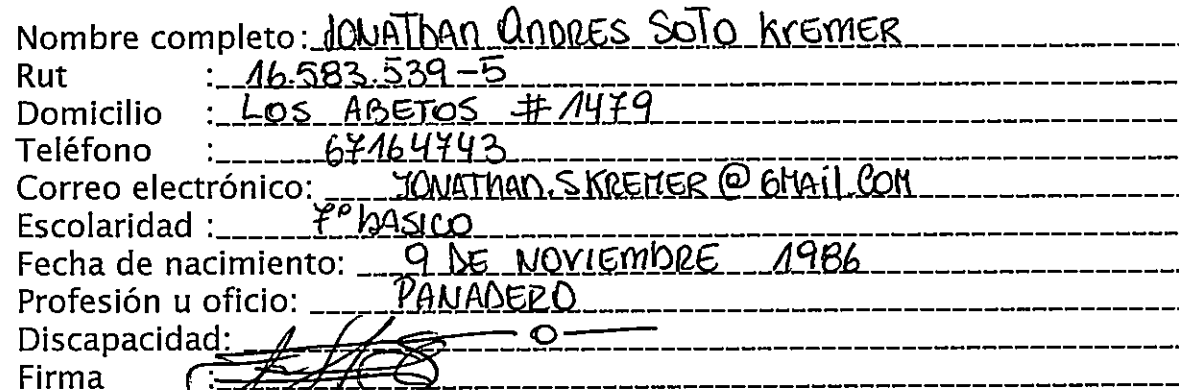 Nombre completo: JONATHAN ANDRES SOTO KREMER
Rut : 16.583.539-5
Domicilio : LOS ABETOS # 1479
Teléfono : 67164743
Correo electrónico: JONATHAN.SKREMER@GMAIL.COM
Escolaridad : 7º BASICO
Fecha de nacimiento: 9 DE NOVIEMBRE 1986
Profesión u oficio: PANADERO
Discapacidad: —o—
Firma :